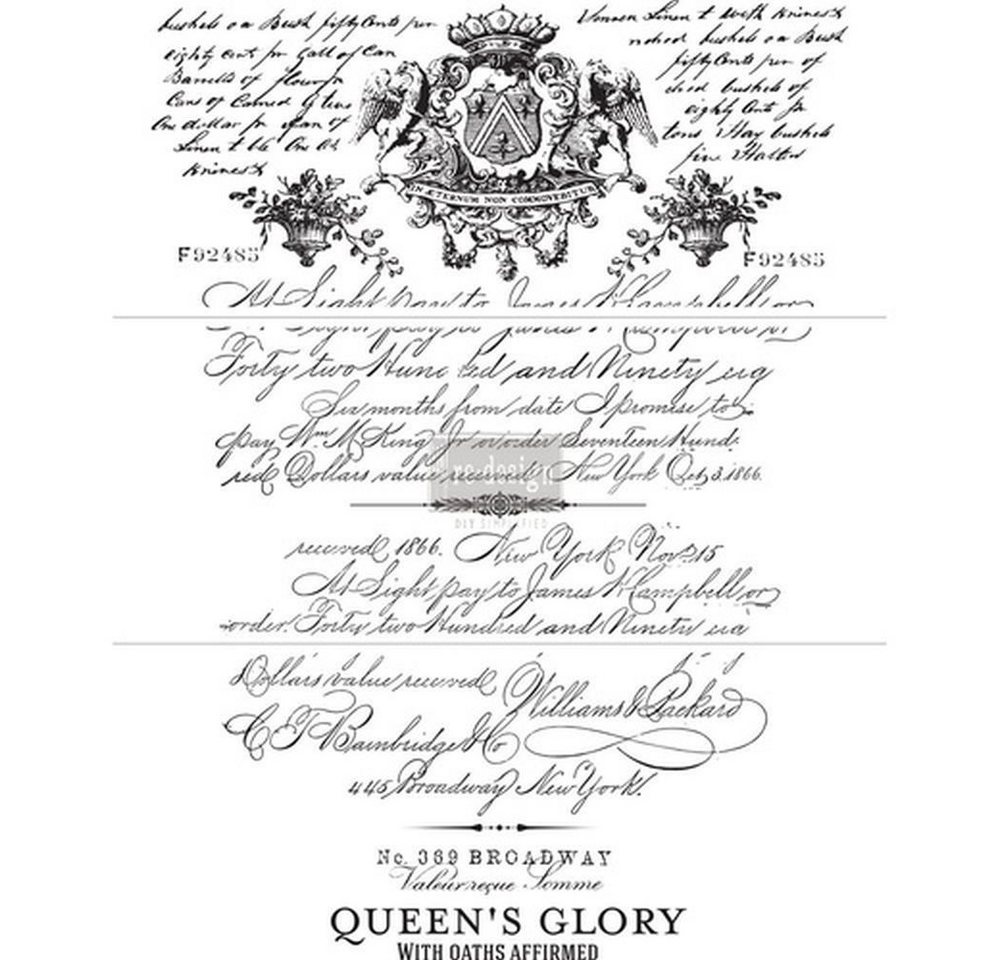 bushels oa Bush fifty Cents per
eighty cent pr Gall of Can
Barrells of flour pr
Cans of Carned
One dollar pr Can of
Linen t
Kniness
Linen t with Kniness
bushels oa Bush
fifty Cents per of
bushels of
eighty Cents pr
tons Hay bushels
IN ÆTERNUM NON COMMOVEBITUR
F92485
F92485
At Sight pay to James W Campbell or
Forty two Hund ed and Ninety eig
Six months from date I promise to
pay Wm M King Jr or order Seventeen Hund
red Dollars value received New York Oct 3. 1866.
re·design
DIY SIMPLIFIED
received, 1866. New York Nov 15
At Sight pay to James W Campbell or
order. Forty two Hundred and Ninety eig
Dollars value received Williams & Packard
C F Bainbridge & Co
445 Broadway New York.
No. 369 BROADWAY
Valeur reçue Somme
QUEEN'S GLORY
WITH OATHS AFFIRMED